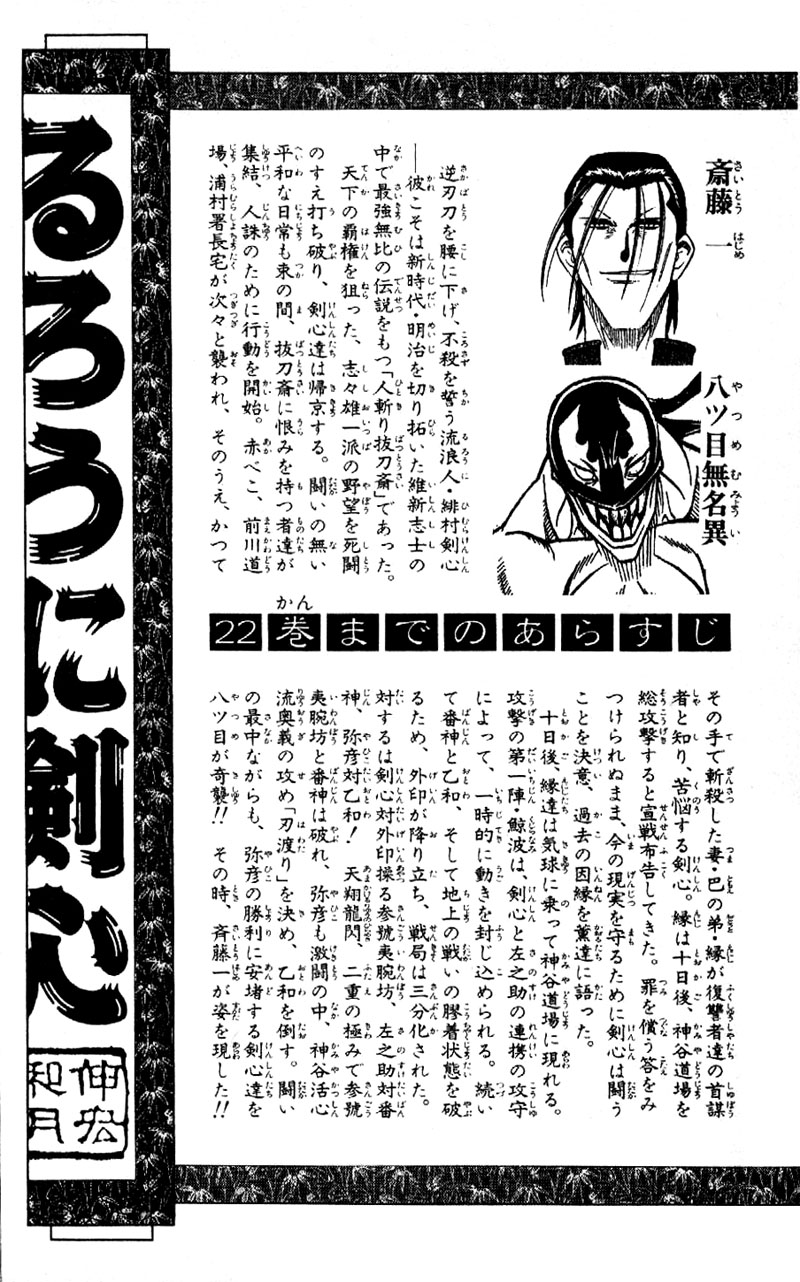 るろうに剣心
和月
伸宏
斎藤一
八ツ目無名異
逆刃刀を腰に下げ、不殺を誓う流浪人・緋村剣心
――彼こそは新時代・明治を切り拓いた維新志士の
中で最強無比の伝説をもつ「人斬り抜刀斎」であった。
天下の覇権を狙った、志々雄一派の野望を死闘
のすえ打ち破り、剣心達は帰京する。闘いの無い
平和な日常も束の間、抜刀斎に恨みを持つ者達が
集結、人誅のために行動を開始。赤べこ、前川道
場、浦村署長宅が次々と襲われ、そのうえ、かつて
22巻までのあらすじ
その手で斬殺した妻・巴の弟・縁が復讐者達の首謀
者と知り、苦悩する剣心。縁は十日後、神谷道場を
総攻撃すると宣戦布告してきた。罪を償う答をみ
つけられぬまま、今の現実を守るために剣心は闘う
ことを決意、過去の因縁を薫達に語った。
十日後、縁達は気球に乗って神谷道場に現れる。
攻撃の第一陣・鯨波は、剣心と左之助の連携の攻守
によって、一時的に動きを封じ込められる。続い
て番神と乙和、そして地上の戦いの膠着状態を破
るため、外印が降り立ち、戦局は三分化された。
対するは剣心対外印操る参號夷腕坊、左之助対番
神、弥彦対乙和！天翔龍閃、二重の極みで参號
夷腕坊と番神は破れ、弥彦も激闘の中、神谷活心
流奥義の攻め「刃渡り」を決め、乙和を倒す。闘い
の最中ながらも、弥彦の勝利に安堵する剣心達を
八ツ目が奇襲!!その時、斉藤一が姿を現した!!